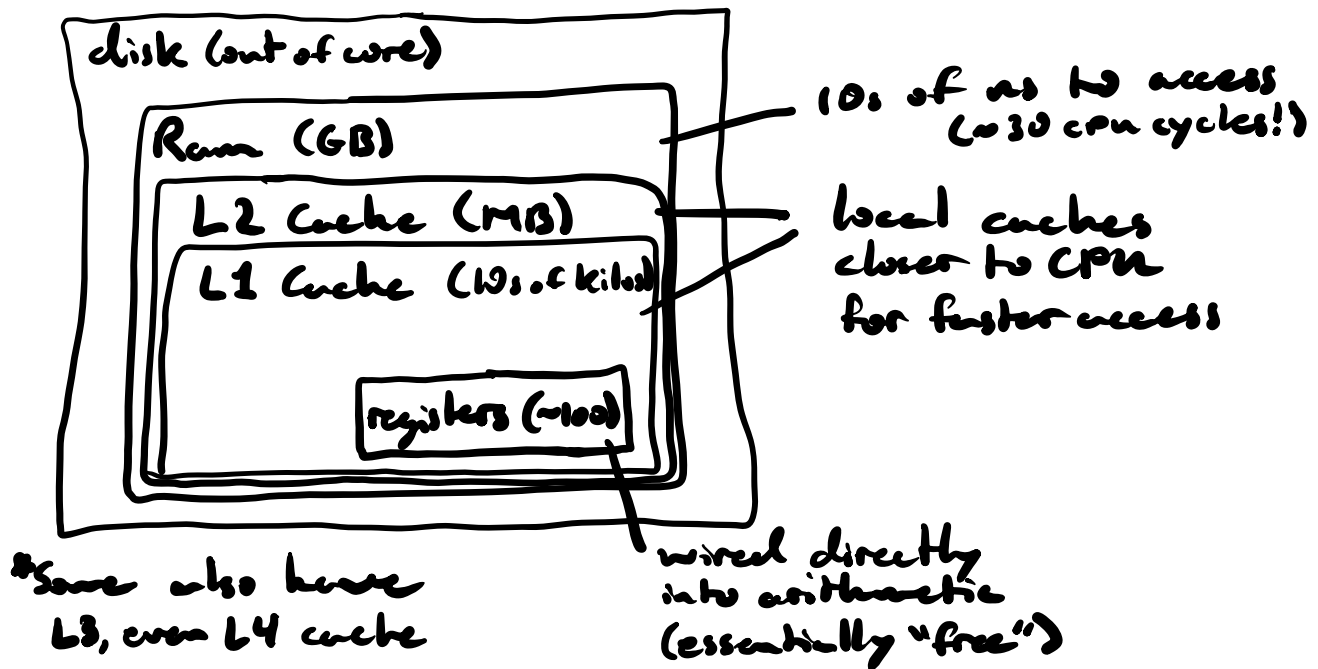 disk (out of core)
Ram (GB)
L2 Cache (MB)
L1 Cache (10s of kilos)
registers (~100)
10s of ns to access
(~30 cpu cycles!)
local caches
closer to CPU
for faster access
wired directly
into arithmetic
(essentially "free")
*Some also have
L3, even L4 cache